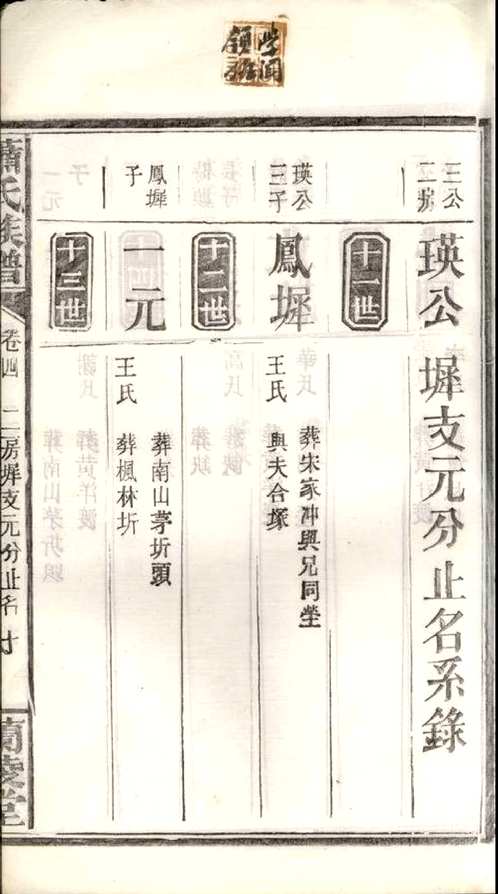 三公二房
瑛公墀支元分止名系錄
十一世
瑛公三子
鳳墀
葬宋家冲與兄同塋
王氏 與夫合塚
十二世
鳳墀子
一元
葬南山茅圻頭
王氏 葬楓林圻
十三世
蕭氏族譜
卷四 二房墀支元分止名
蘭陵堂